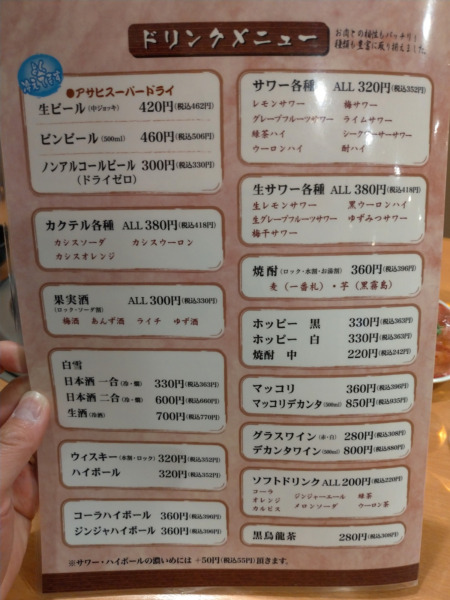 ドリンクメニュー
お肉との相性もバッチリ!
種類も豊富に取り揃えました。
●アサヒスーパードライ
生ビール(中ジョッキ) 420円(税込462円)
ビンビール(500ml) 460円(税込506円)
ノンアルコールビール 300円(税込330円)
(ドライゼロ)
カクテル各種 ALL 380円(税込418円)
カシスソーダ カシスウーロン
カシスオレンジ
果実酒 ALL 300円(税込330円)
(ロック・ソーダ割)
梅酒 あんず酒 ライチ ゆず酒
白雪
日本酒 一合(冷・燗) 330円(税込363円)
日本酒 二合(冷・燗) 600円(税込660円)
生酒(冷酒) 700円(税込770円)
ウィスキー(水割・ロック) 320円(税込352円)
ハイボール 320円(税込352円)
コーラハイボール 360円(税込396円)
ジンジャハイボール 360円(税込396円)
サワー各種 ALL 320円(税込352円)
レモンサワー 梅サワー
グレープフルーツサワー ライムサワー
緑茶ハイ シークァーサーサワー
ウーロンハイ 酎ハイ
生サワー各種 ALL 380円(税込418円)
生レモンサワー 黒ウーロンハイ
生グレープフルーツサワー ゆずみつサワー
梅干サワー
焼酎(ロック・水割・お湯割) 360円(税込396円)
麦(一番札)・芋(黒霧島)
ホッピー 黒 330円(税込363円)
ホッピー 白 330円(税込363円)
焼酎 中 220円(税込242円)
マッコリ 360円(税込396円)
マッコリデカンタ(500ml) 850円(税込935円)
グラスワイン(赤・白) 280円(税込308円)
デカンタワイン(500ml) 800円(税込880円)
ソフトドリンク ALL 200円(税込220円)
コーラ ジンジャーエール 緑茶
オレンジ メロンソーダ ウーロン茶
カルピス
黒烏龍茶 280円(税込308円)
※サワー・ハイボールの濃いめには +50円(税込55円)頂きます。